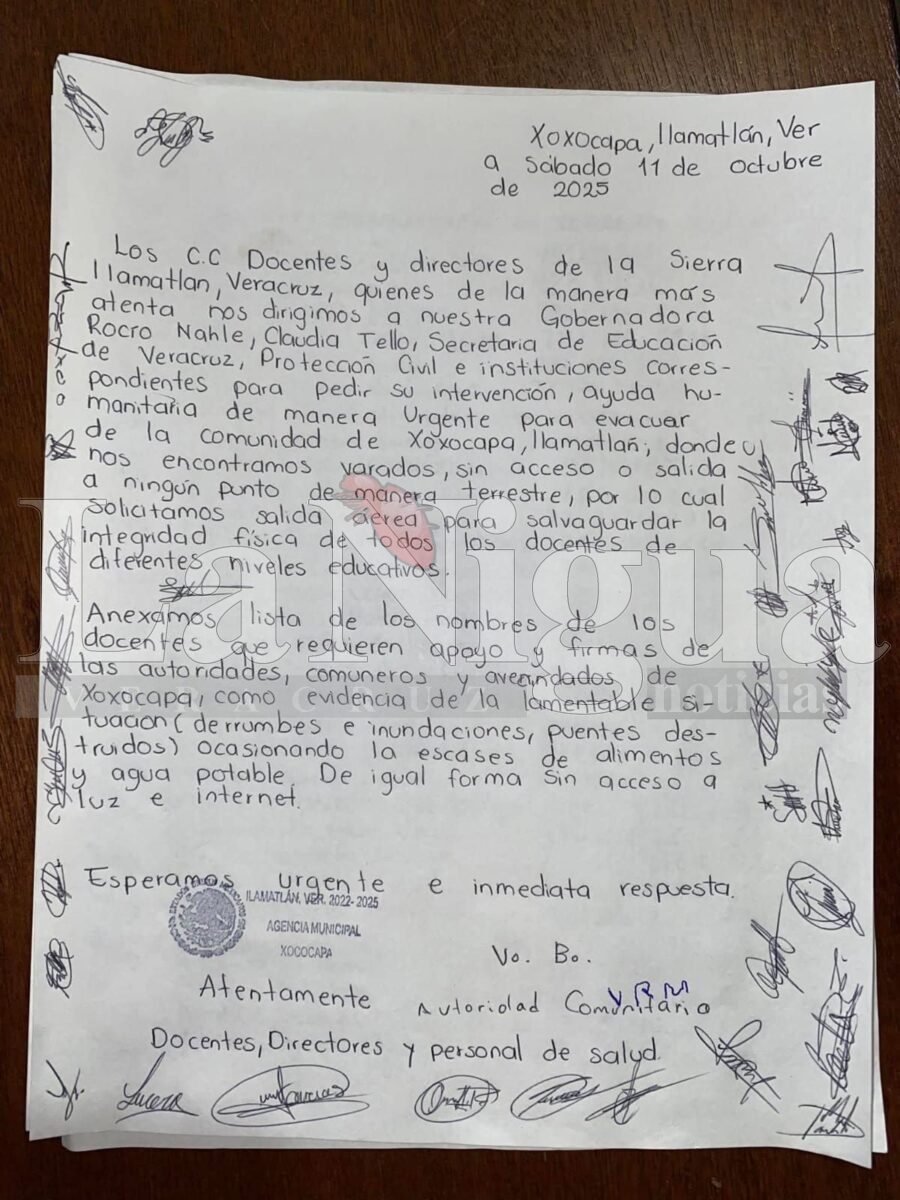 Xoxocapa, Ilamatlán, Ver
a Sábado 11 de octubre
de 2025
Los C.C Docentes y directores de la Sierra
Ilamatlan, Veracruz, quienes de la manera más
atenta nos dirigimos a nuestra Gobernadora
Rocro Nahle, Claudia Tello, Secretaria de Educación
de Veracruz, Protección Civil e instituciones corres-
pondientes para pedir su intervención, ayuda hu-
manitaria de manera Urgente para evacuar
de la comunidad de Xoxocapa, Ilamatlán, donde
nos encontramos varados, sin acceso o salida
a ningún punto de manera terrestre, por lo cual
solicitamos salida aérea para salvaguardar la
integridad física de todos los docentes de
diferentes niveles educativos.
Anexamos lista de los nombres de los
docentes que requieren apoyo y firmas de
las autoridades, comuneros y avecindados de
Xoxocapa, como evidencia de la lamentable si-
tuación (derrumbes e inundaciones, puentes des-
truidos) ocasionando la escases de alimentos
y agua potable. De igual forma sin acceso a
luz e internet.
Esperamos urgente e inmediata respuesta.
ILAMATLÁN, VER. 2022-2025
AGENCIA MUNICIPAL
XOCOCAPA
Vo. Bo.
Atentamente
Autoridad Comunitaria
V R M
Docentes, Directores y personal de salud.
Lucero
La Nigua
VERACRUZ noticias